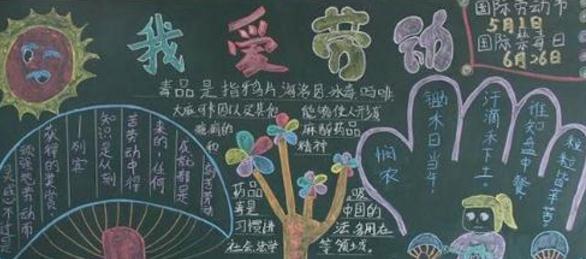 我爱劳动
国际劳动节
5月1日
国际禁毒日
6月26日
毒品是指鸦片海洛因冰毒吗啡
大麻可卡因以及其他 能够使人形成
瘾癖的 麻醉药品
和 精神
药品 吸
毒是 中国的
习惯讲 法多用在
社会法学 等领域。
灵感,不过是
顽强地劳动而
获得的奖赏。
—列宾
知识是从刻
苦劳动中得
来的,任何
成就都是
刻苦劳动
悯农
锄禾日当午,
汗滴禾下土。
谁知盘中餐,
粒粒皆辛苦。